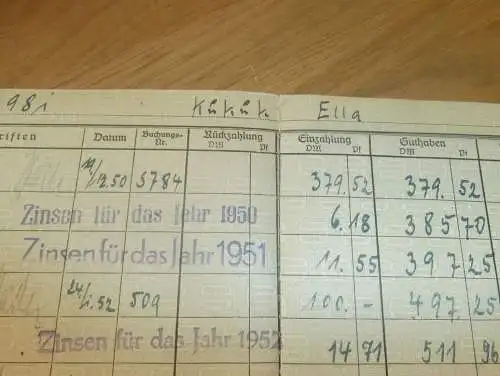 98i Kukuk Ella
riften Datum Buchungs-Nr. Rückzahlung DM Pf Einzahlung DM Pf Guthaben DM Pf
3784 379. 52 379. 52
Zinsen für das Jahr 1950 6. 18 385 70
Zinsen für das Jahr 1951 11. 55 397 25
509 100. - 497 25
Zinsen für das Jahr 1952 14 71 511 96